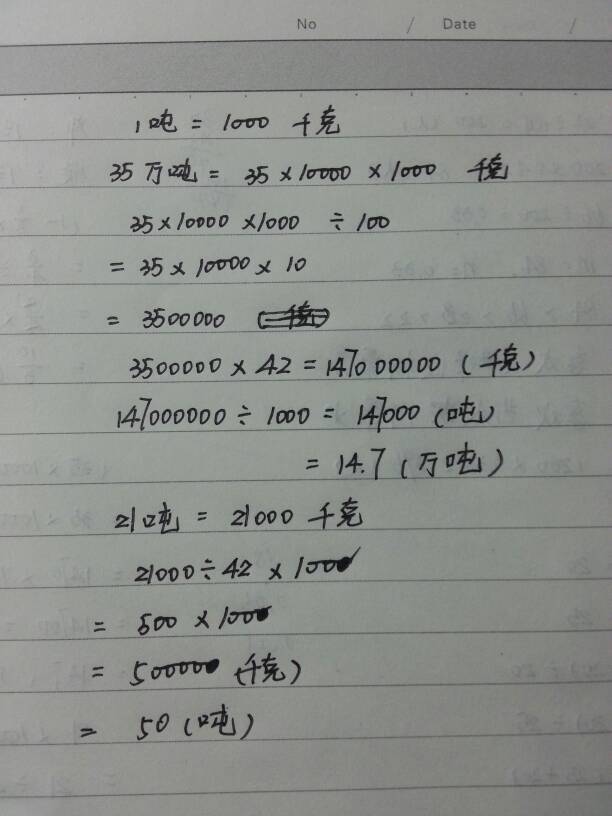 No / Date /
1吨 = 1000 千克
35万吨 = 35×10000×1000 千克
35×10000×1000 ÷ 100
= 35×10000×10
= 3500000
3500000 × 42 = 147000000 (千克)
147000000 ÷ 1000 = 147000 (吨)
= 14.7 (万吨)
21吨 = 21000 千克
21000÷42 × 100
= 500 × 100
= 50000 (千克)
= 50 (吨)